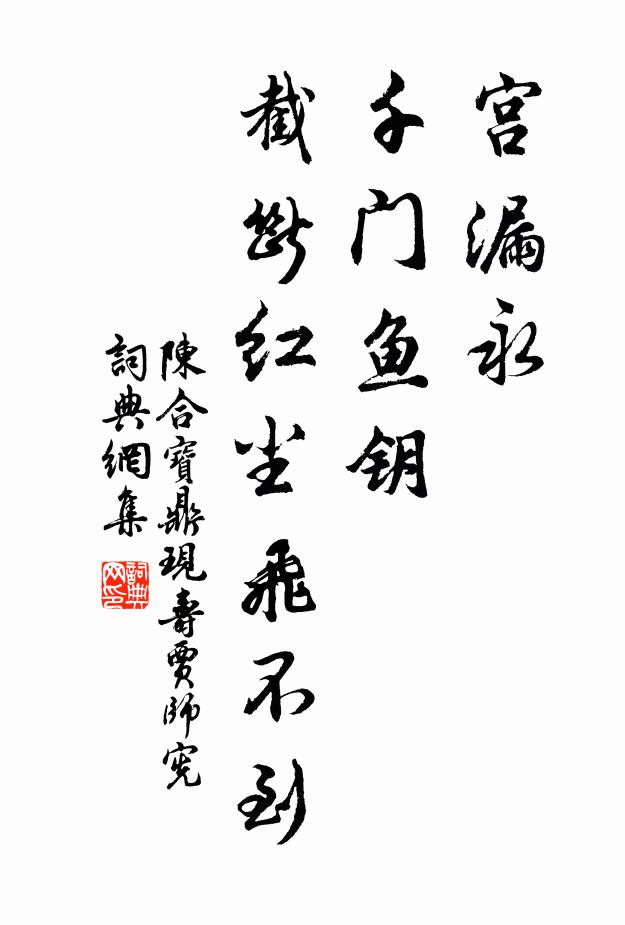 宫漏永
千门鱼钥
截断红尘飞不到
陳合寶鼎現壽賈師憲
詞典網集
詞典网印